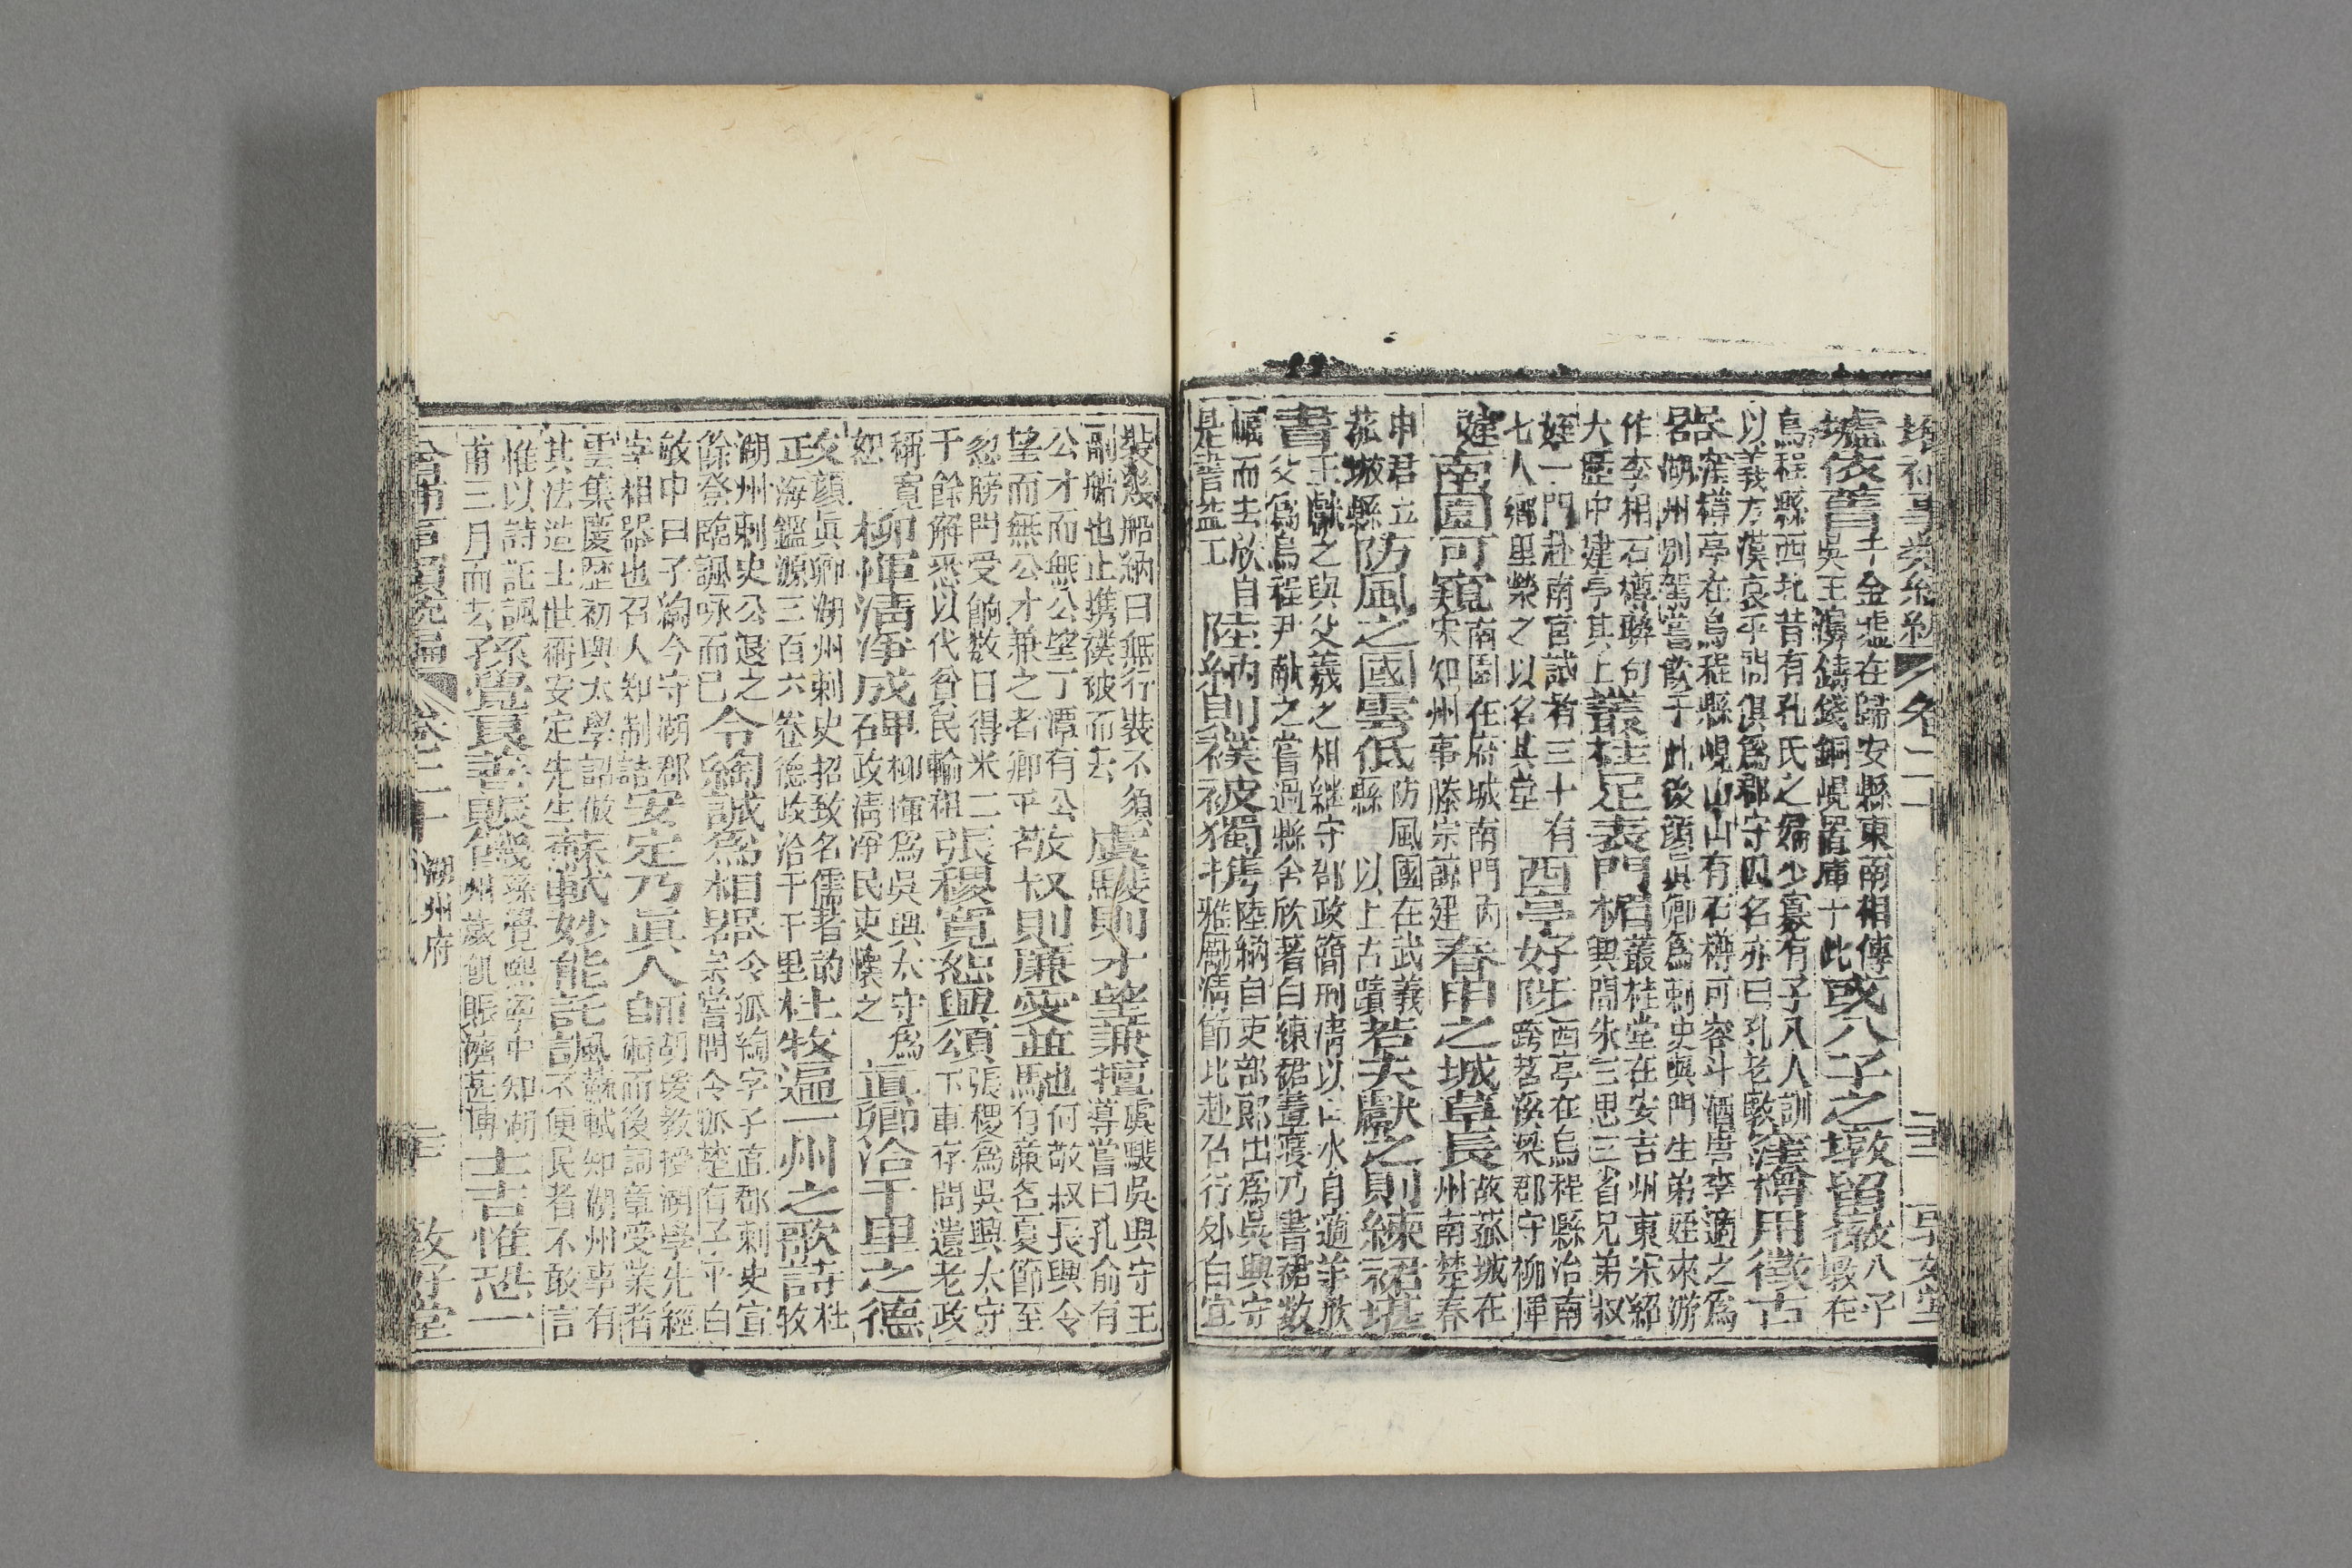 墟依舊 子金墟在歸安縣東南相傳
吳王濞鑄錢銅峴置庫于此
或八子之墩留嶽 八子墩在
烏程縣西北昔有孔氏之婦少寡有子八人訓
以義方漢哀平間俱爲郡守因名亦曰孔老墩
窪樽用徵古
窪樽亭在烏程縣峴山山有石樽可容斗酒唐李適之爲
湖州別駕嘗飲于此後顏眞卿爲刺史與門生弟姪來游
作李相石樽聯句
大歷中建亭其上
叢桂足表門楣 叢桂堂在安吉州東宋紹
興間朱三思三省兄弟叔
姪一門赴南宮試者三十有
七人鄉里榮之以名其堂
西亭好陟 西亭在烏程縣治南
跨苕溪梁郡守柳惲
建
南園可窺 南園在府城南門內
宋知州事滕宗諒建
春申之城草長 故菰城在
州南楚春
申君立
菰城縣
防風之國雲低 防風國在武義
縣 以上古蹟
若夫獻之則練裙堪
書 王獻之與父羲之相繼守郡政簡刑淸以山水自適羊欣
父爲烏程尹獻之嘗過縣舍欣著白練裙晝寢乃書裙數
幅而去欣自
是書益工
陸納則襆被獨雋 陸納自吏部郎出爲吳興守
雅厲淸節比赴召行外白宜
裝幾船納曰無行裝不須
副船也止攜襆被而去
虞騣則才望兼擅 虞騣吳興守王
導嘗曰孔俞有
公才而無公望丁潭有公
望而無公才兼之者卿乎
敬叔則廉愛並馳 何敬叔長興令
有廉名夏節至
忽牓門受餉数日得米二
千餘斛悉以代貧民輸租
張稷寬恕興頌 張稷爲吳興太守
下車存問遺老政
稱寬
恕
柳惲淸淨成碑 柳惲爲吳興太守爲
政淸凈民吏懷之
眞卿洽千里之德
文顏眞卿湖州刺史招致名儒著韵
海鑑源三百六卷德政洽于千里
杜牧遍一州之歌詩 杜牧
湖州刺史公退之
餘登臨諷咏而已
令綯誠爲相器 令狐綯字子直郡刺史宣
宗嘗問令狐楚有子乎白
敏中曰子綯今守湖郡
宰相器也召入知制誥
安定乃眞人師 胡瑗教授湖學先經
術而後詞章受業者
雲集慶歷初興太學詔倣
其法造士世稱安定先生
蘇軾妙能託諷 蘇軾知湖州事有
不便民者不敢言
惟以詩託諷
孫覺良善賑饑 孫覺熙寧中知湖
州歲飢賑濟甚博
甫三月而去
士吉惟恐一
卷二十
湖州府
敦好堂